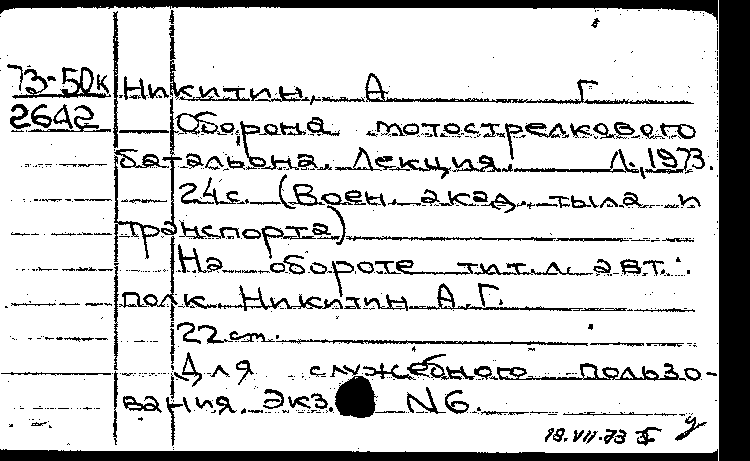 73-50к Никитин, А Г
2642 Оборона мотострелкового
батальона. Лекция. Л., 1973.
24с. (Воен. акад. тыла и
транспорта)
На обороте тит. л. авт.:
полк. Никитин А.Г.
22 cm.
Для служебного пользо-
вания. Экз. N6.
19.VII.73